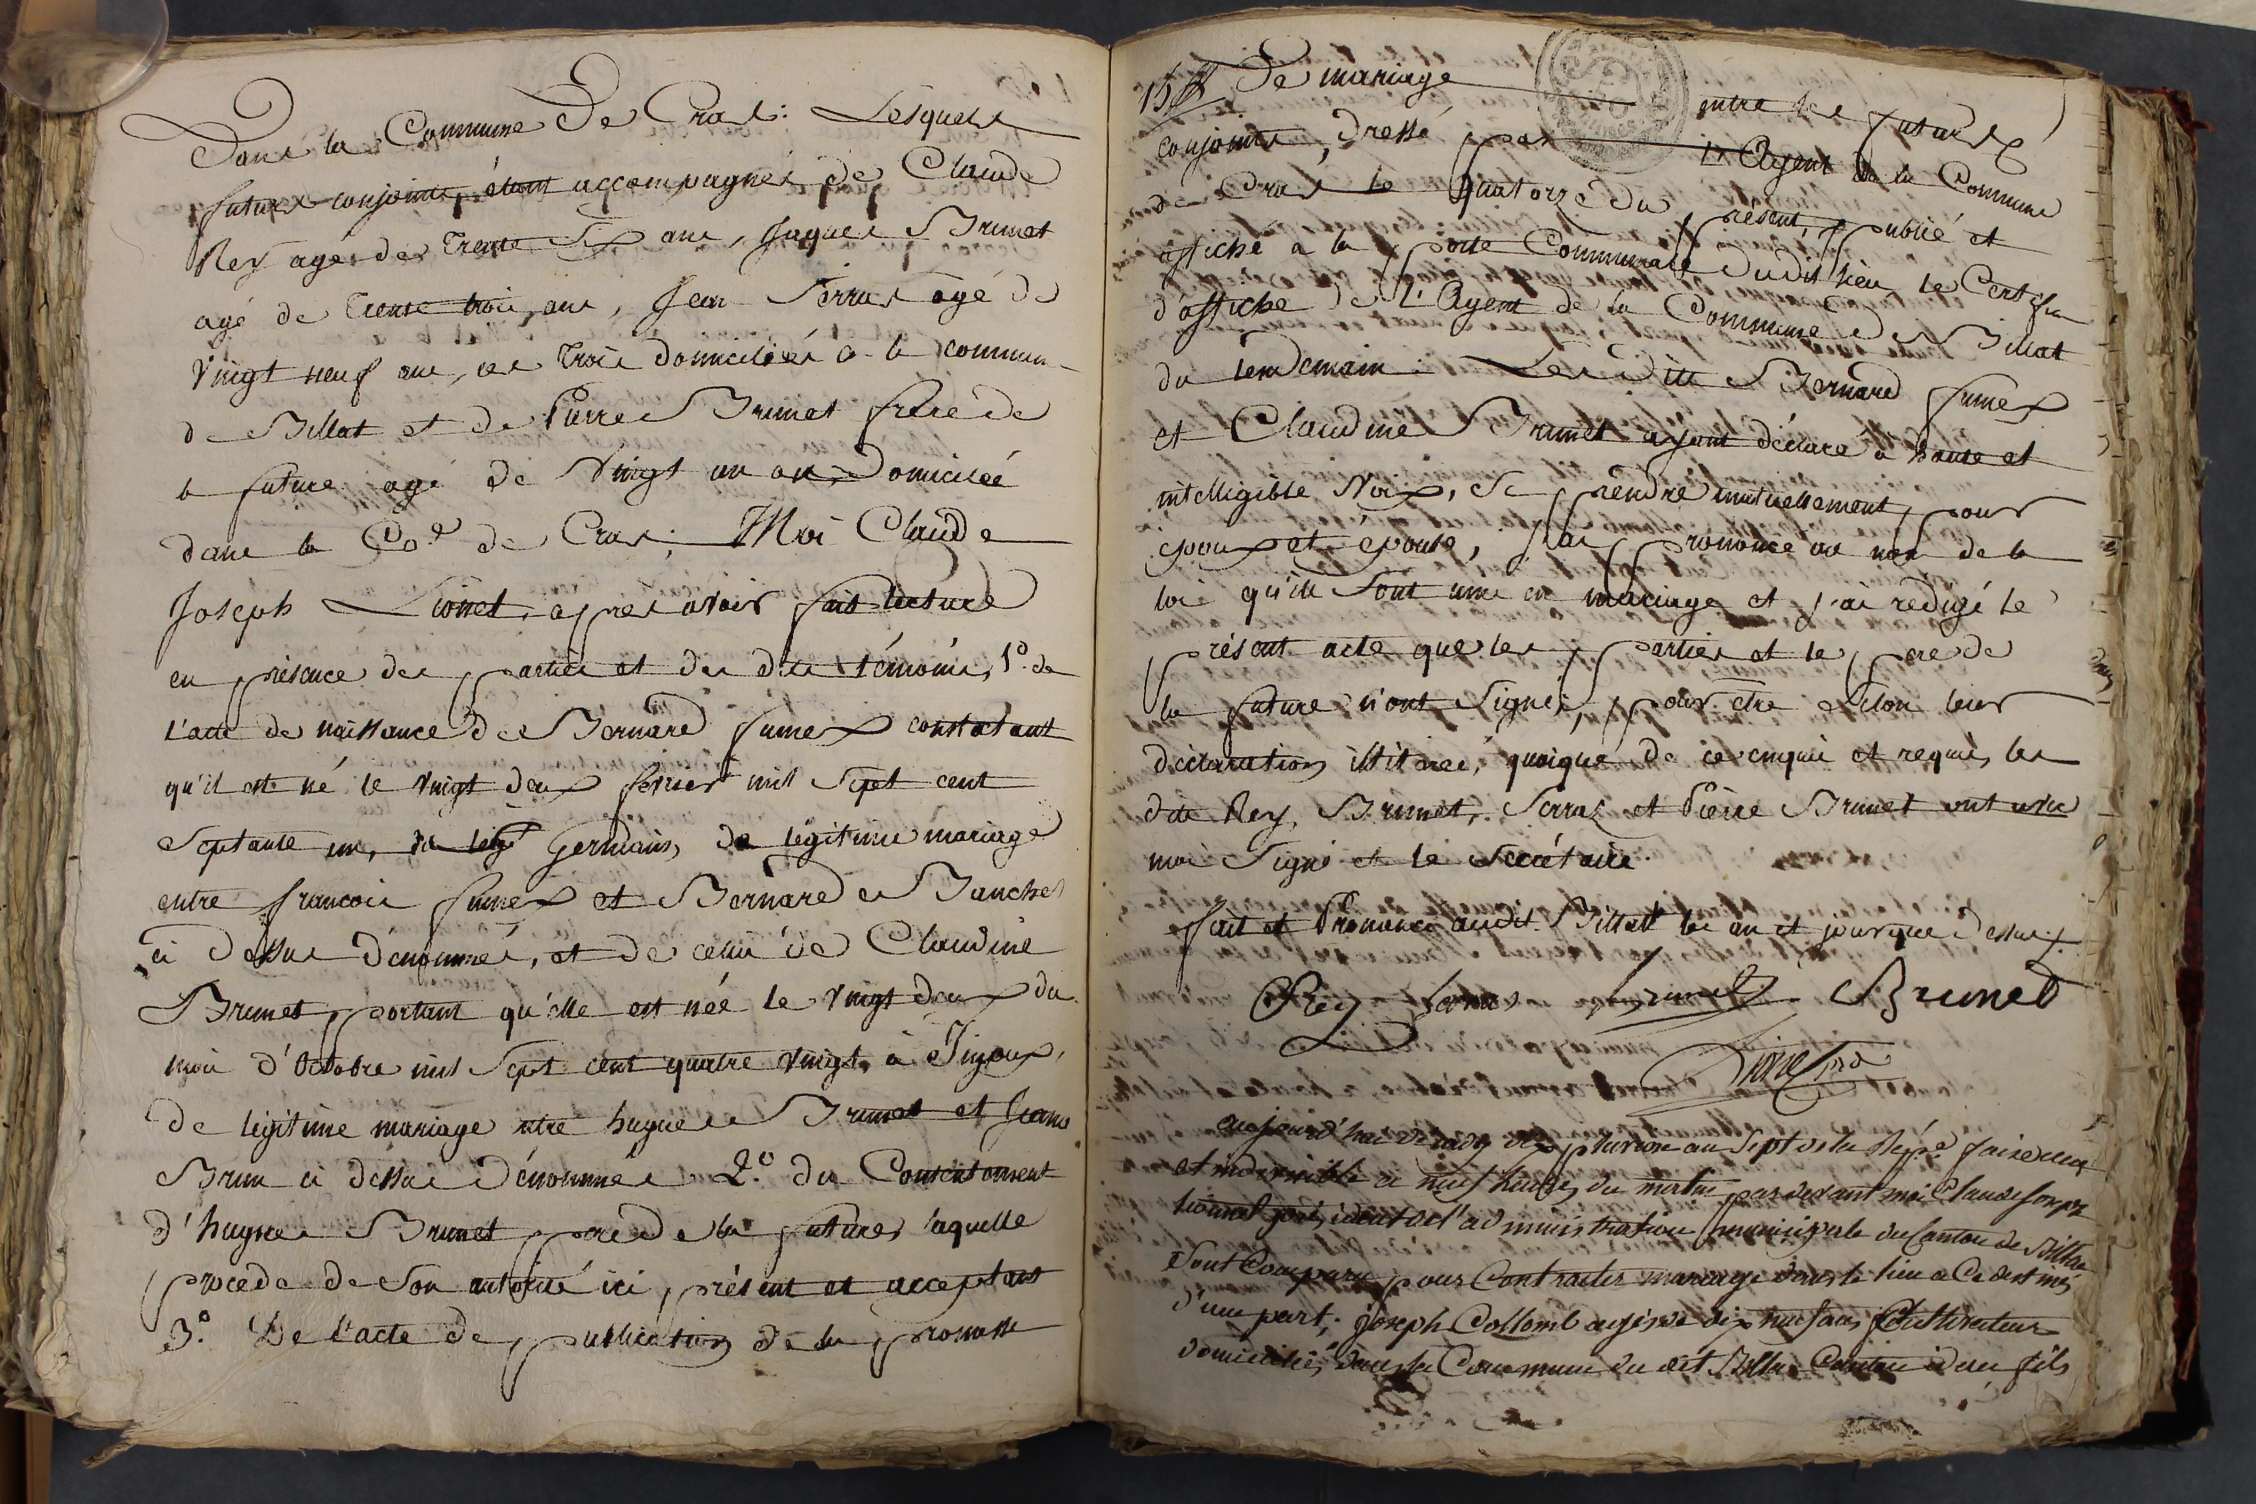 Dans la Commune De Cras: Lesquels
futurs conjoints, étant accompagnés de Claude
Rey agé de Trente Six ans, Jaques Brunet
agé de Trente trois ans, Jean Serras agé de
Vingt neuf ans, les Trois domiciliés à la commun-
de Billat et de Pierre Brunet frère de
la future agé de Vingt un an Domicilié
dans la Co.e de Cras; Moi Claude
Joseph Lionet, après avoir fait lecture
en présence des parties et des dits témoins, 1º. de
l'acte de naissance de Bernard fumex constatant
qu'il est né le vingt deux fevrier mil Sept cent
Septante un, St Germain, de légitime mariage
entre francois fumex et Bernarde Blanchet
ci dessus dénommés, et de celui de Claudine
Brunet portant qu'elle est née le vingt deux du
mois d'Octobre mil Sept cent quatre vingt, à Injoux,
de légitime mariage entre hugues Brunet et Jeanne
Brun ci dessus dénommés 2º. du Consentement
d'hugues Brunet père de la future, laquelle
procède de Son autorité ici présent et acceptant
3º. De l'acte de publication de la promesse
15 De mariage entre les futurs
conjoints, dressé par l'Agent de la Commune
de Cras le Quatorze du présent, publié et
affiché à la porte Communale dudit lieu, le Certifica
d'affiche de l'Agent de la Commune de Billat
du lendemain: Les dits Bernard fumex
et Claudine Brunet ayant déclaré à haute et
intelligible Voix, Se prendre mutuellement, pour
époux et épouse, j'ai prononcé au nom de la
loi qu'ils Sont unis en mariage et j'ai redigé le
présent acte que les parties et le père de
la future n'ont Signés, pour être Selon leur
déclaration illitérés, quoique de ce enquis et requis, les
dits Rey, Brunet, Serras et Pierre Brunet ont avec
moi Signé et le Secrétaire.
fait et Prononcé audit Billat les an et jour que dessus.
Rey Serras Brunet Brunet
aujourd'hui decady dix pluviose an Sept de la Rép.e faise une
et indivisible à neuf heures du matin, par devant moi Claude Joseph
Lionnet président de l'administration municipale du Canton de Billia
Sont Comparu pour Contracter mariage dans le lieu à Ce destiné,
d'une part; Joseph Collomb agé de dix neuf ans, Cultivateur
domicilié, dans la Commune du dit Billia, Canton idem fils